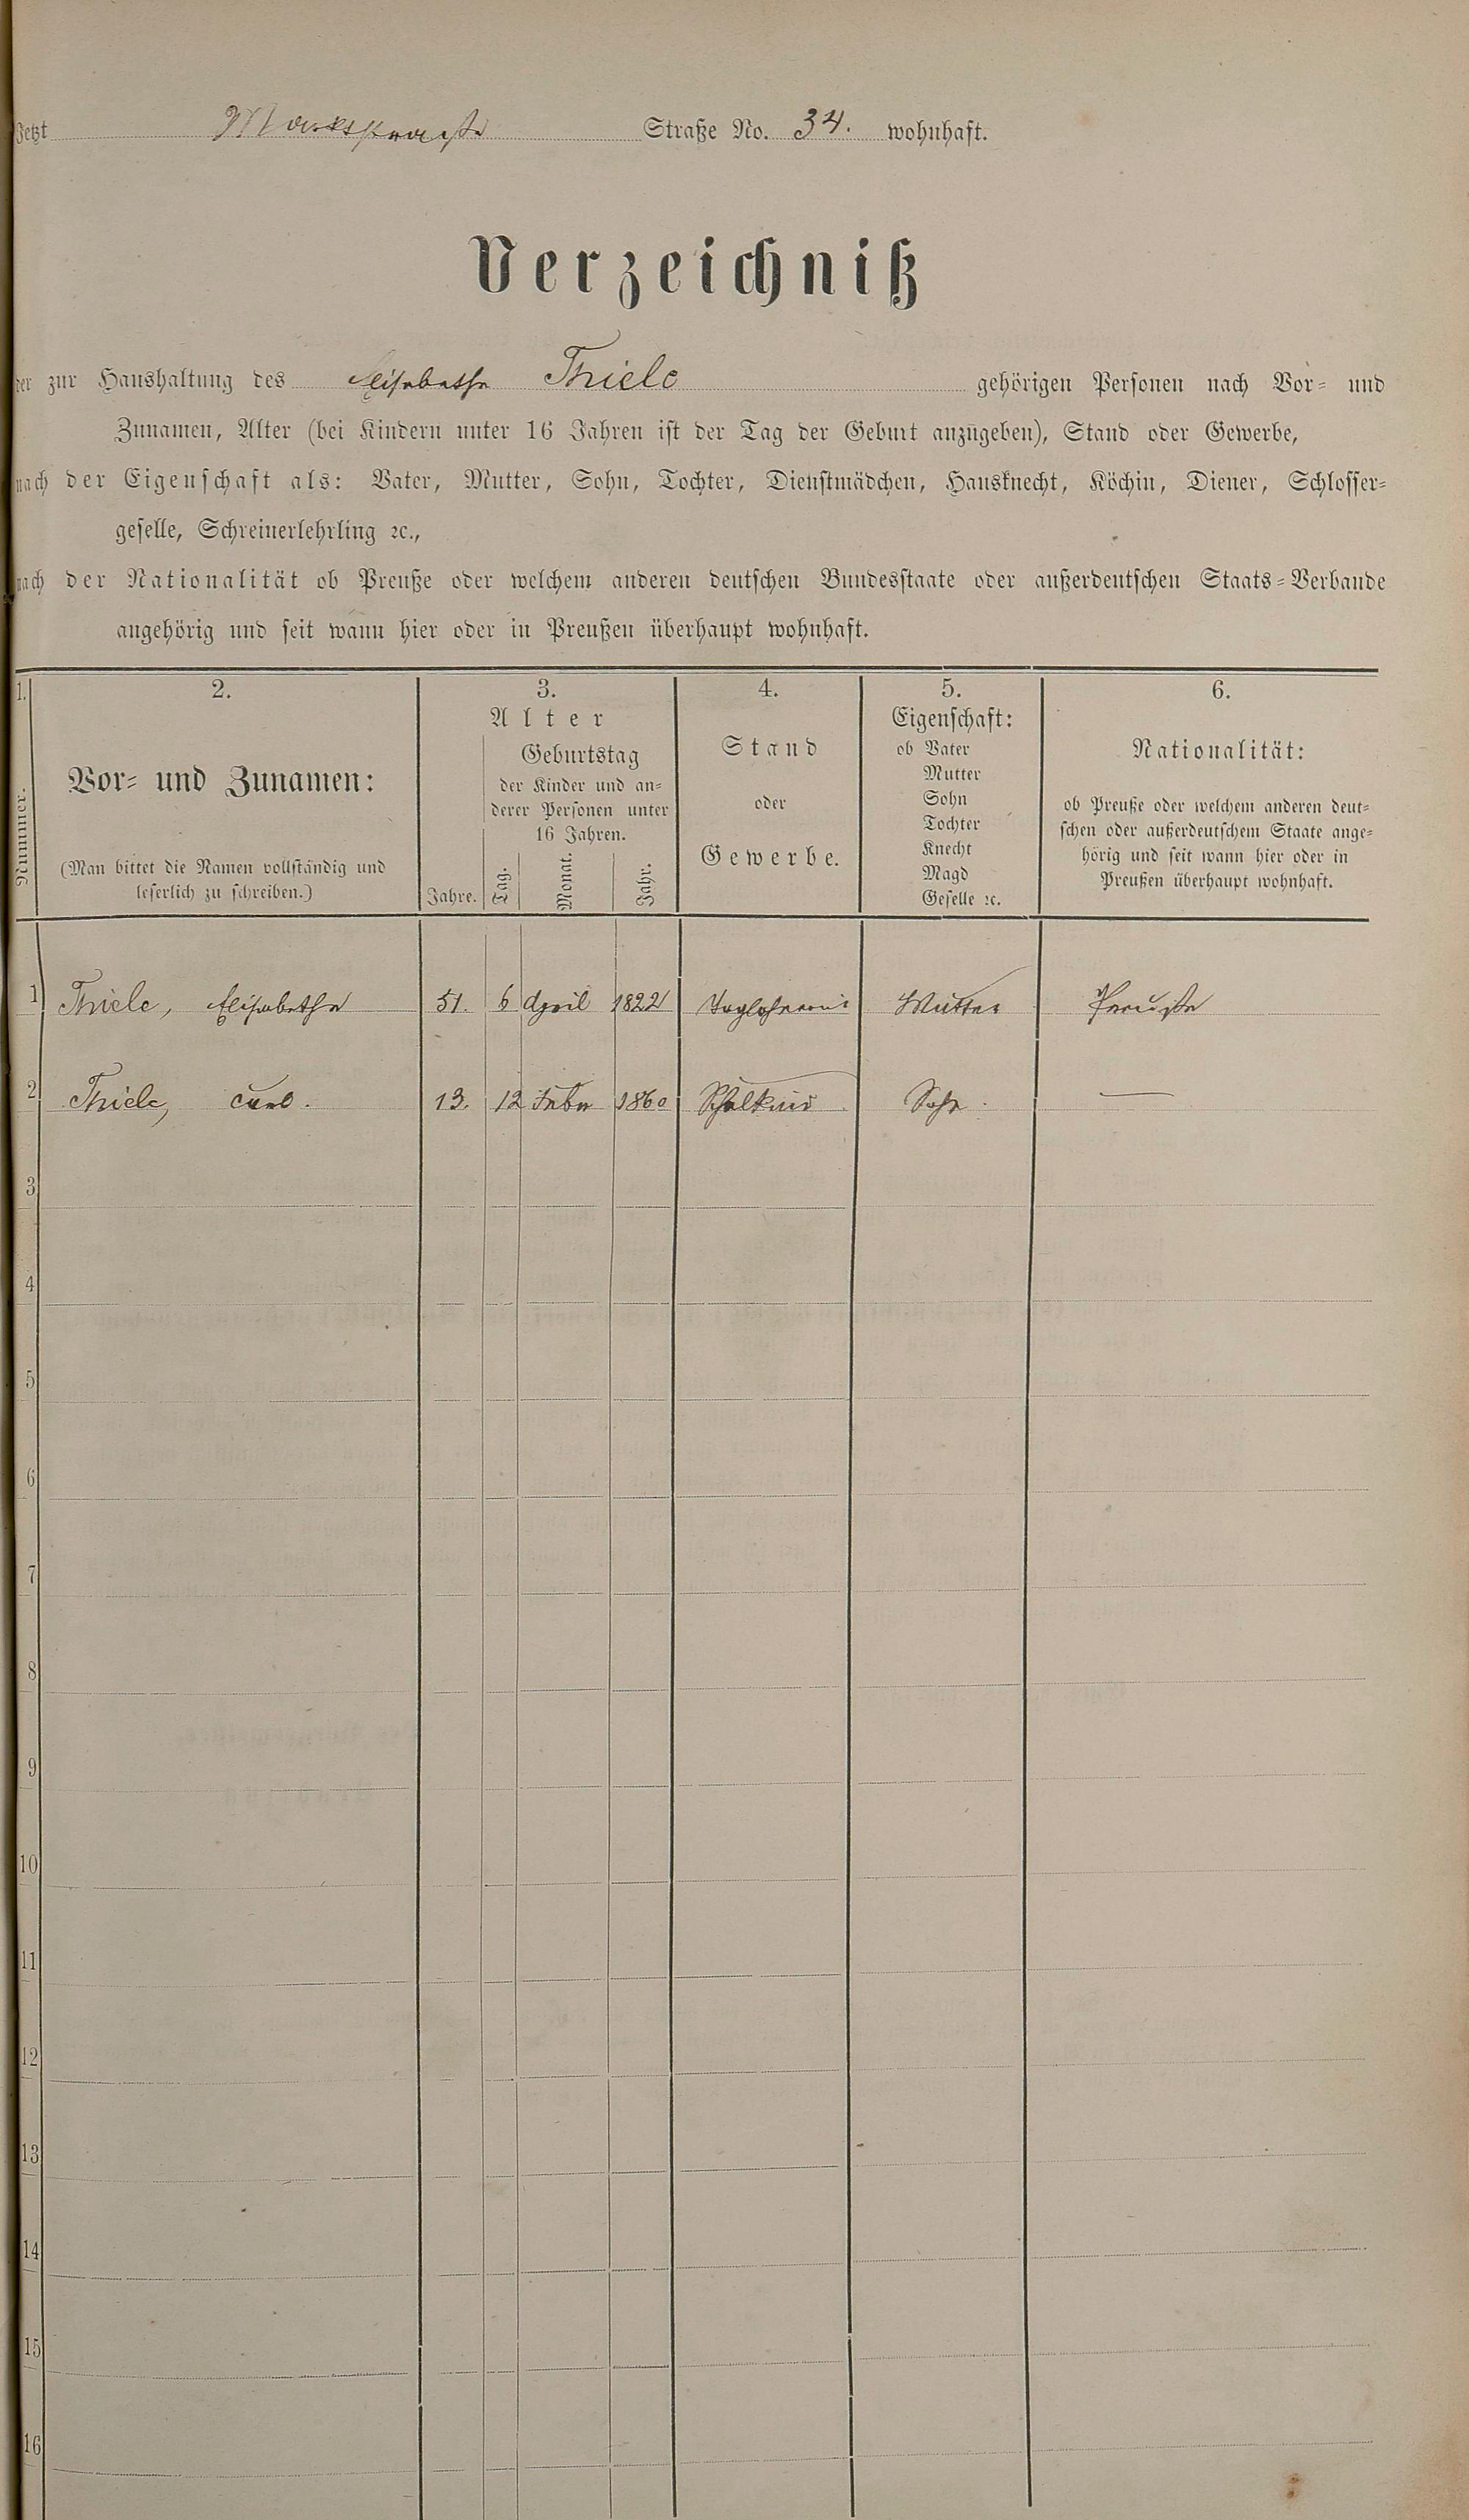 Jetzt Marktstraße Straße No. 34. wohnhaft.
Verzeichniß
der zur Haushaltung des Elisabetha Thiele gehörigen Personen nach Vor- und
Zunamen, Alter (bei Kindern unter 16 Jahren ist der Tag der Geburt anzugeben), Stand oder Gewerbe,
nach der Eigenschaft als: Vater, Mutter, Sohn, Tochter, Dienstmädchen, Hausknecht, Köchin, Diener, Schlosser-
geselle, Schreinerlehrling ꝛc.,
nach der Nationalität ob Preuße oder welchem anderen deutschen Bundesstaate oder außerdeutschen Staats-Verbande
angehörig und seit wann hier oder in Preußen überhaupt wohnhaft.
1. 2. 3. 4. 5. 6.
Nummer.
Vor- und Zunamen:
(Man bittet die Namen vollständig und
leserlich zu schreiben.)
Alter
Geburtstag
der Kinder und an-
derer Personen unter
16 Jahren.
Jahre. Tag. Monat. Jahr.
Stand
oder
Gewerbe.
Eigenschaft:
ob Vater
Mutter
Sohn
Tochter
Knecht
Magd
Geselle ꝛc.
Nationalität:
ob Preuße oder welchem anderen deut-
schen oder außerdeutschem Staate ange-
hörig und seit wann hier oder in
Preußen überhaupt wohnhaft.
1 Thiele, Elisabetha 51. 6 April 1822 Mutter Preuße
2 Thiele, Carl. 13. 12 1860 Schulkind Sohn. —
3
4
5
6
7
8
9
10
11
12
13
14
15
16